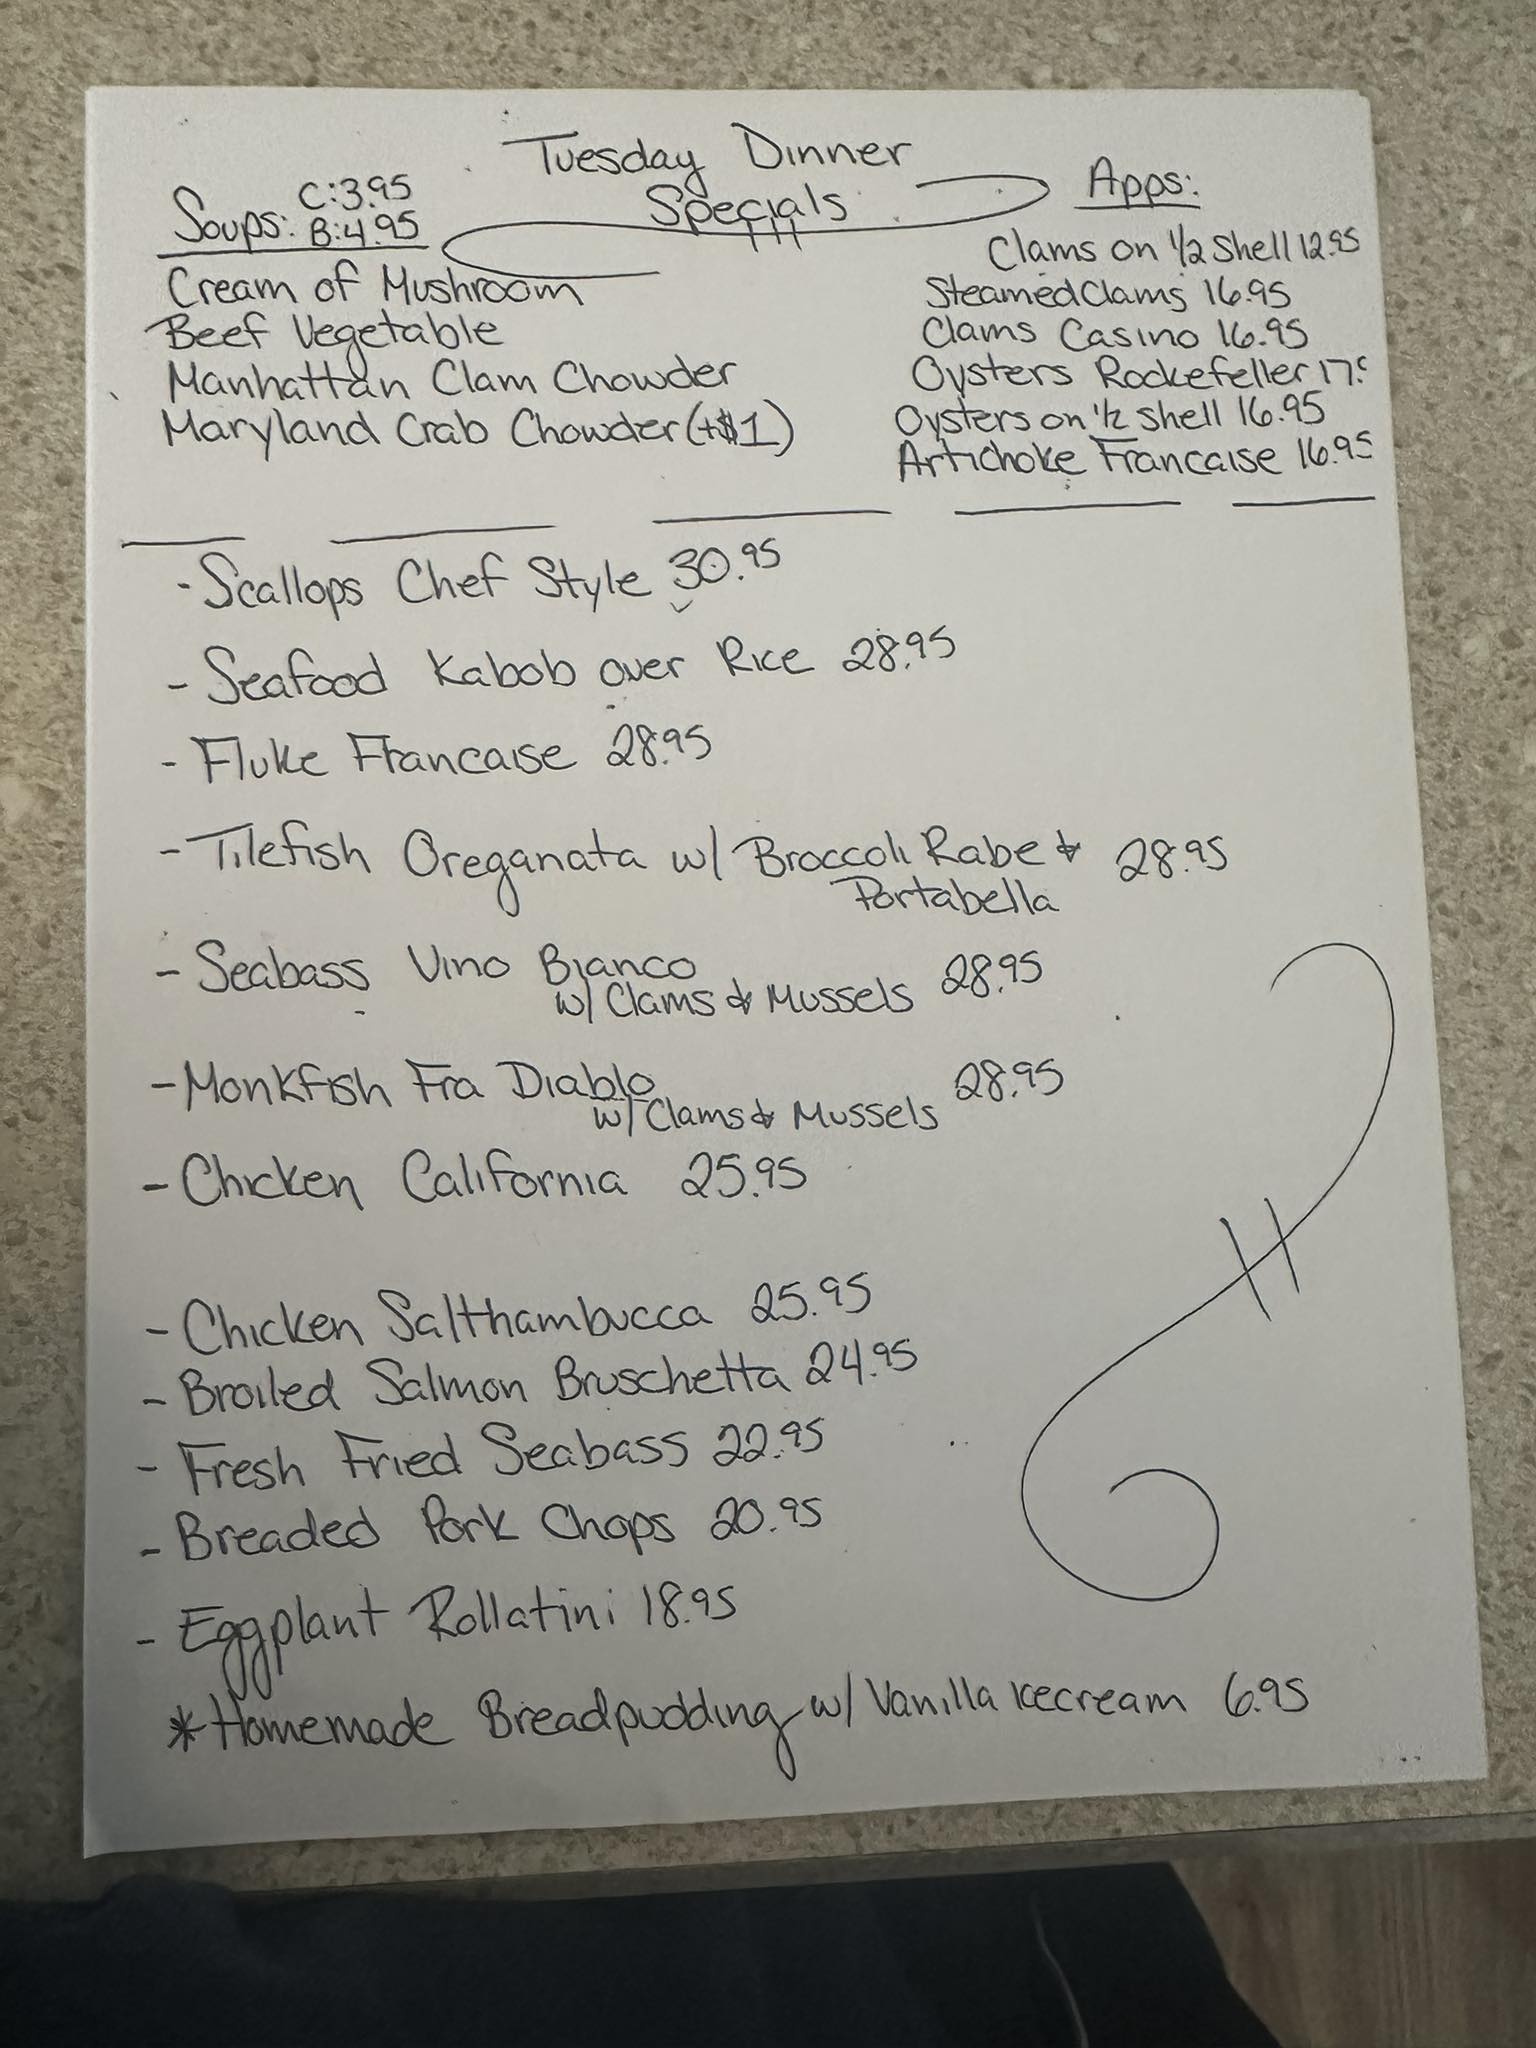 Tuesday Dinner
Specials
Soups: C:3.95
B:4.95
Cream of Mushroom
Beef Vegetable
Manhattan Clam Chowder
Maryland Crab Chowder (+$1)
Apps:
Clams on 1/2 Shell 12.95
Steamed Clams 16.95
Clams Casino 16.95
Oysters Rockefeller 17.
Oysters on 1/2 Shell 16.95
Artichoke Francaise 16.95
- Scallops Chef Style 30.95
- Seafood Kabob over Rice 28.95
- Fluke Francaise 28.95
- Tilefish Oreganata w/ Broccoli Rabe & 28.95
Portabella
- Seabass Vino Bianco 28.95
w/ Clams & Mussels
- Monkfish Fra Diablo 28.95
w/ Clams & Mussels
- Chicken California 25.95
- Chicken Salthambucca 25.95
- Broiled Salmon Bruschetta 24.95
- Fresh Fried Seabass 22.95
- Breaded Pork Chops 20.95
- Eggplant Rollatini 18.95
*Homemade Breadpudding w/ Vanilla icecream 6.95